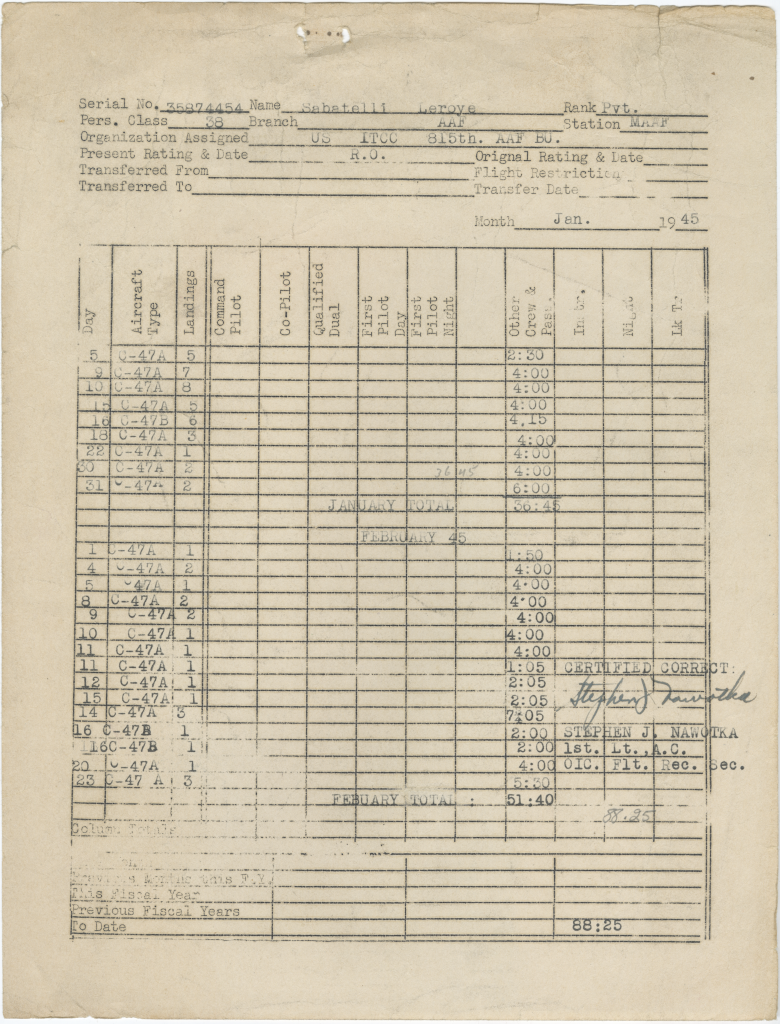 Serial No. 35874454 Name Sabatelli Leroye Rank Pvt.
Pers. Class 38 Branch AAF Station MAAF
Organization Assigned US ITCC 815th. AAF BU.
Present Rating & Date R.O. Orignal Rating & Date
Transferred From Flight Restriction
Transferred To Transfer Date
Month Jan. 1945
Day Aircraft Type Landings Command Pilot Co-Pilot Qualified Dual First Pilot Day First Pilot Night Other Crew & Pass. Instr. Night Lk Tr
5 C-47A 5 2:30
9 C-47A 7 4:00
10 C-47A 8 4:00
15 C-47A 5 4:00
16 C-47B 6 4.15
18 C-47A 3 4:00
22 C-47A 1 4:00
30 C-47A 2 36 45 4:00
31 C-47A 2 6:00
JANUARY TOTAL 36:45
FEBRUARY 45
1 C-47A 1 1:50
4 C-47A 2 4:00
5 C-47A 1 4:00
8 C-47A 2 4:00
9 C-47A 2 4:00
10 C-47A 1 4:00
11 C-47A 1 4:00
11 C-47A 1 1:05 CERTIFIED CORRECT:
12 C-47A 1 2:05
15 C-47A 1 2:05 Stephen J Nawotka
14 C-47A 3 7:05
16 C-47B 1 2:00 STEPHEN J. NAWOTKA
116C-47B 1 2:00 1st. Lt.,A.C.
20 C-47A 1 4:00 OIC. Flt. Rec. Sec.
23 C-47 A 3 5:30
FEBUARY TOTAL : 51:40
88.25
Column Totals
Previous Months this F.Y.
This Fiscal Year
Previous Fiscal Years
To Date 88:25